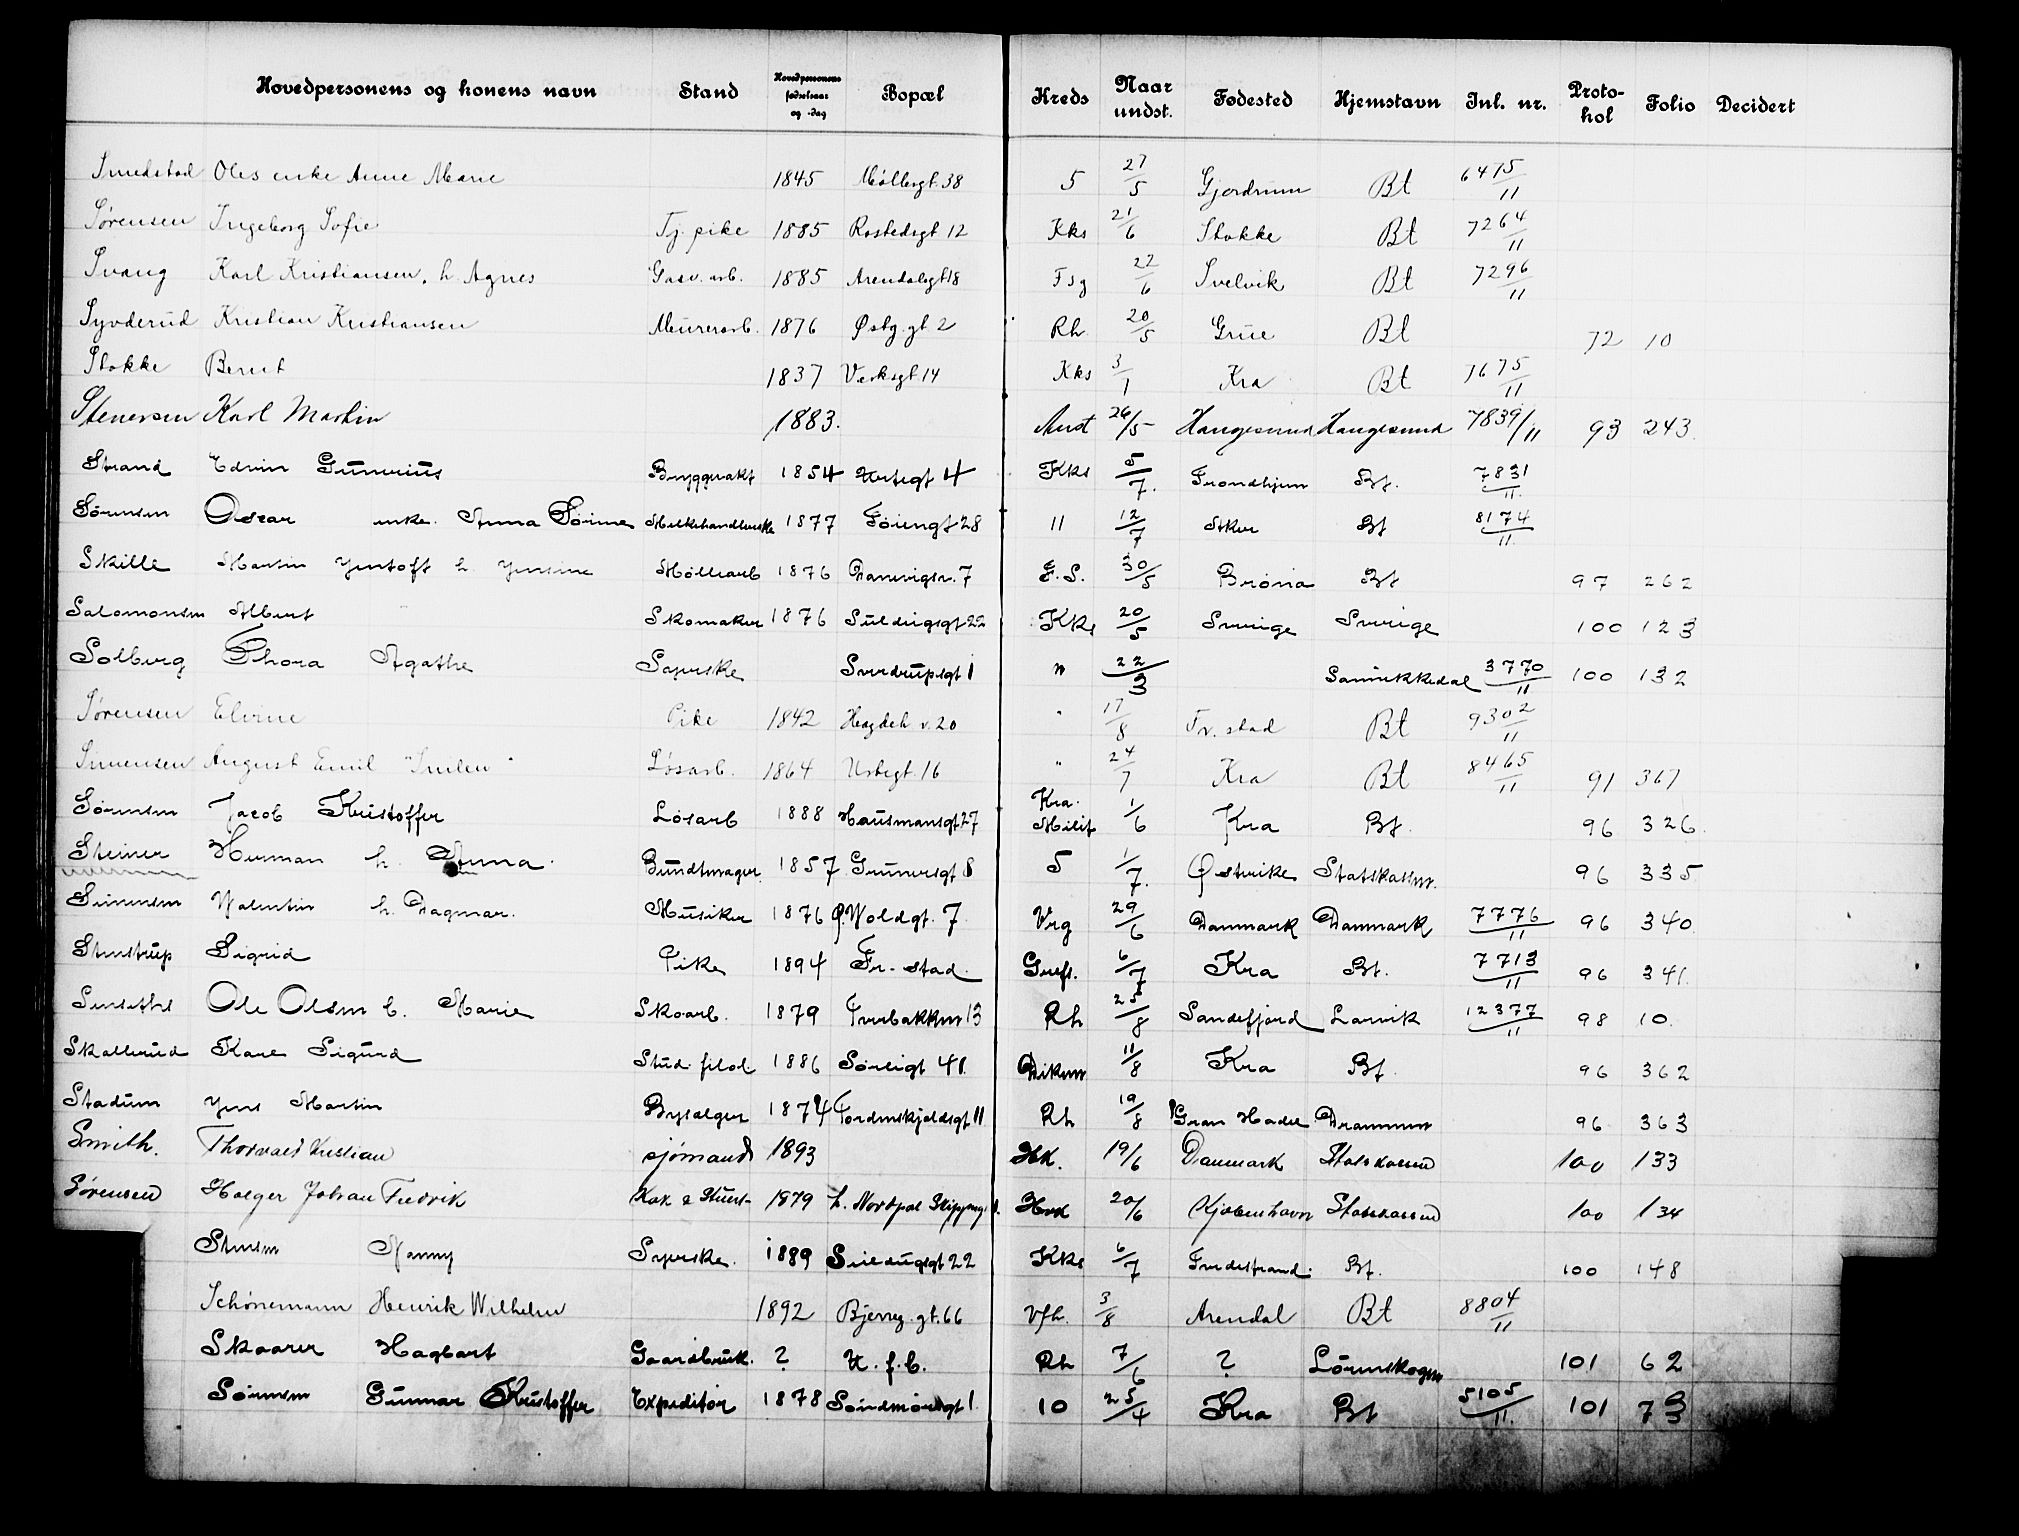 Hovedpersonens og konens navn Stand Hovedpersonens fødselsaar og -dag Bopæl Kreds Naar undst. Fødested Hjemstavn Inl. nr. Proto-kol Folio Decidert
Smedstad Oles enke Anne Marie 1845 Møllergt. 38 5 27/5 Gjerdrum Bt 6475/11
Sørensen Ingeborg Sofie Tj. pike 1885 Rostedsgt 12 Kks 21/6 Stokke Bt 7264/11
Svang Karl Kristiansen, h. Agnes Gasv. arb. 1885 Arendalsgt 18 Fsg 22/6 Svelvik Bt 7296/11
Syvderud Kristian Kristiansen Murerarb. 1876 Østg. gt 2 Rh 20/5 Grue Bt 72 10
Stokke Bernt 1837 Verksgt 14 Kks 3/1 Kra Bt 7675/11
Stenersen Karl Martin 1883. Anst 26/5 Haugesund Haugesund 7839/11 93 243
Strand Edvin Gunerius Bryggevakt 1854 Urtegt 4 Kks 5/7. Trondhjem Bt. 7831/11.
Sørensen Oscar enke. Anna Sørine Melkehandlerske 1877 Føiengt 28 11 12/7 Aker Bt 8174/11.
Skille Martin Jentoft h. Jensine Møllearb 1876 Darrevigsv. 7 F.S. 30/5 Brønø Bt 97 262
Salomonsen Albert Skomaker 1876 Seildugsgt 22 Kks 20/5 Sverige Sverige 100 123
Solberg Thora Agathe Syerske Sverdrupsgt 1 " 22/3 Sannikkedal 3770/11 100 132
Sørensen Elvine Pike 1842 Hegdeh. v. 20 " 17/8 Fr. stad Bt 9302/11
Simensen August Emil "Smilen" Løsarb. 1864 Urtegt. 16 " 24/7 Kra Bt 8465/11 91 367
Sørensen Jacob Kristoffer Løsarb 1888 Hausmansgt 27 Kra. Milit 1/6 Kra Bt. 96 326.
Steiner Herman h. Anna. Bundtmager. 1857 Grunersgt 8 5 1/7. Østerike Statskassen. 96 335
Simensen Valentin h. Dagmar. Musiker 1876 Ø. Voldgt. 7 Vrg 29/6 Danmark Danmark 7776/11 96 340
Stenstrup Sigrid Pike 1894 Fr.-stad. Grefs. 6/7 Kra Bt. 7713/11 96 341.
Ole Olsen h. Marie Skoarb. 1879 Tverbakken 13 Rh 25/8 Sandefjord Larvik 12377/11 98 10.
Skallerud Kare Sigurd Stud. filol 1886 Sørligt 41. Dikem 11/8 Kra Bt. 96 362
Stadum Jens Martin Bysælger 1874 Tordenskjoldsgt 11 Rh 19/8 Gran Hadel Drammen 96 363
Smith. Thorvald Kristian sjømand 1893 Hk. 19/6 Danmark Statskassen 100 133
Sørensen Holger Johan Fredrik Kok & Stuert- 1879 Hvk 20/6 Kjøbenhavn Statskassen 100 134
Stensen Nanny Syerske. 1889 Seildugsgt 22 Kks 6/7 Tvedestrand. Bt. 100 148
Schønemann Henrik Wilhelm 1892 Bjerreg. gt. 66 Vfh. 3/8 Arendal Bt 8804/11
Skaarer Hagbart Gaardbruk. ? U. f. b. Rh 7/6 ? Lørenskogen 101 62
Sørensen Gunnar Kristoffer Expeditør 1878 Søndmørsgt 1. 10 25/4 Kra Bt 5105/11. 101 73